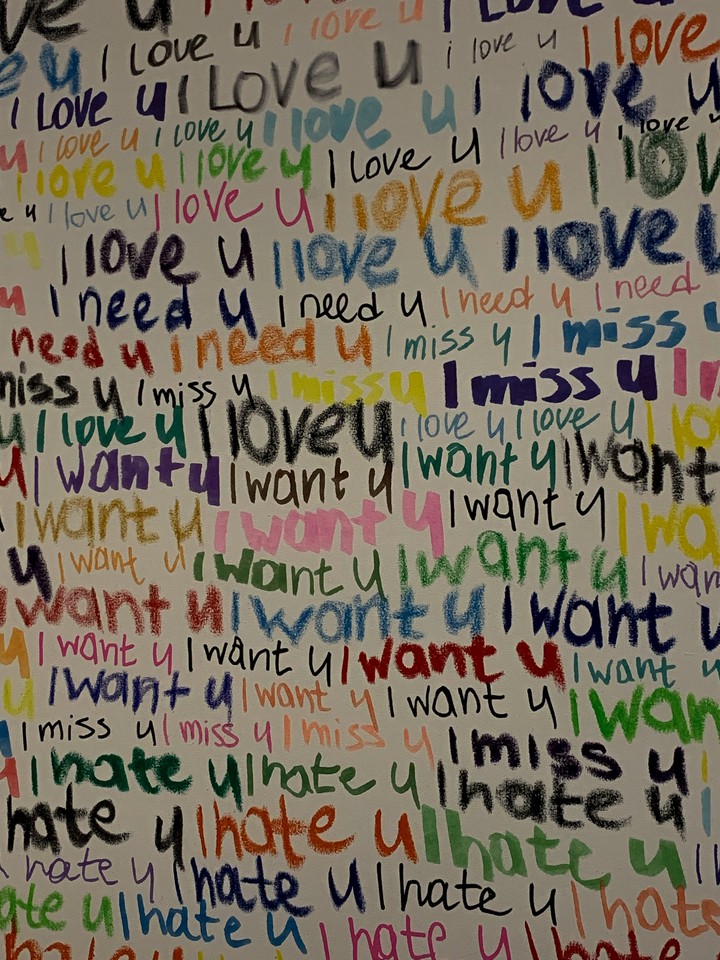 ve u I love u
I love u I love u i love u I love
e u I Love u I Love u I love u
u I love u I love u I love u I love u I love u
I love u I love u I love u I lov
e u I love u I love u I love u
u I love u I love u I love u
u I need u I need u I need u I need
need u I need u I miss y I miss u
miss y I miss y I miss u I miss u I
u I love u I love u I love u I love U I lo
u I want u I want u I want y I want
I want u I want u I want y I wa
u I want u I want u I want u I wan
I want u I want u I want u
u I want y I want y I want u I want u
u I want u I want y I want u I wan
I miss y I miss y I miss u I miss u
I hate u I hate u I hate u
hate u I hate u I hate u
hate y I hate u I hate u I hate
ate u I hate u I hate u I hate